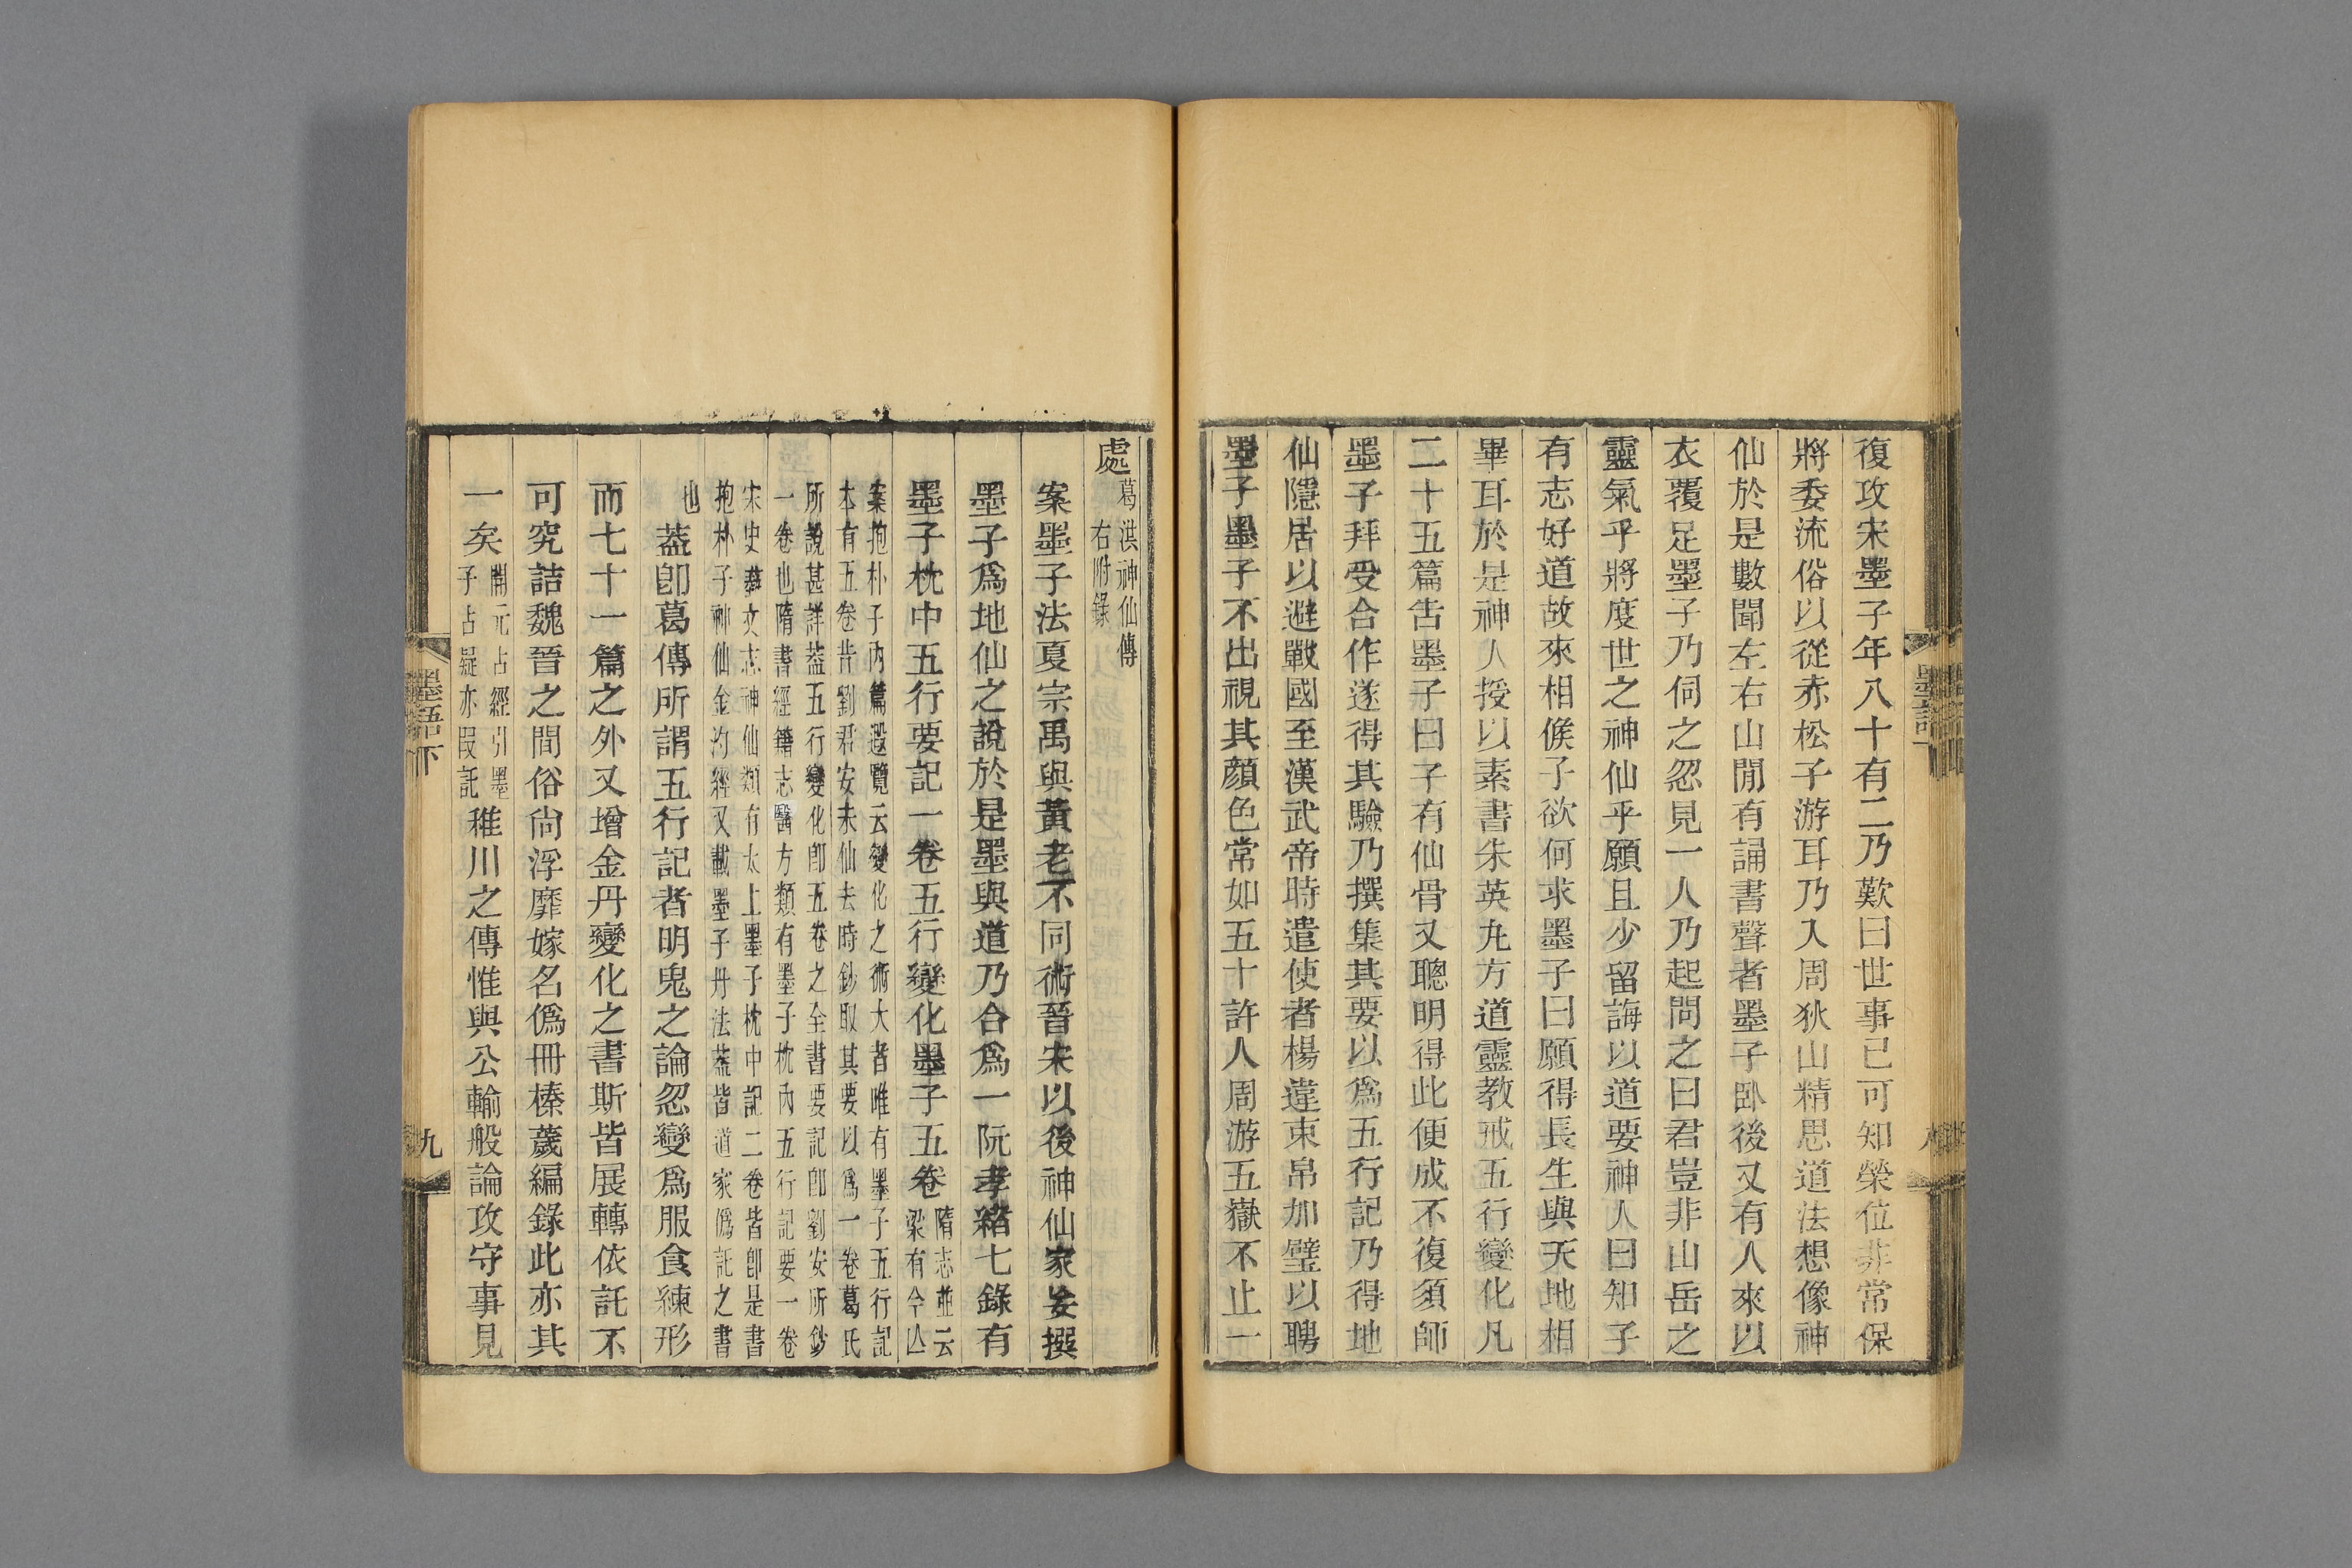 復攻宋墨子年八十有二乃歎曰世事已可知榮位非常保
將委流俗以從赤松子游耳乃入周狄山精思道法想像神
仙於是數聞左右山閒有誦書聲者墨子臥後又有人來以
衣覆足墨子乃伺之忽見一人乃起問之曰君豈非山岳之
靈氣乎將度世之神仙乎願且少留誨以道要神人曰知子
有志好道故來相候子欲何求墨子曰願得長生與天地相
畢耳於是神人授以素書朱英丸方道靈教戒五行變化凡
二十五篇告墨子曰子有仙骨又聰明得此便成不復須師
墨子拜受合作遂得其驗乃撰集其要以爲五行記乃得地
仙隱居以避戰國至漢武帝時遣使者楊違束帛加璧以聘
墨子墨子不出視其顏色常如五十許人周游五嶽不止一
墨語下
處葛洪神仙傳
右附錄
案墨子法夏宗禹與黃老不同術晉宋以後神仙家妄撰
墨子爲地仙之說於是墨與道乃合爲一阮孝緒七錄有
墨子枕中五行要記一卷五行變化墨子五卷隋志竝云
梁有今亾
案抱朴子內篇遐覽云變化之術大者唯有墨子五行記
本有五卷昔劉君安未仙去時鈔取其要以爲一卷葛氏
所說甚詳葢五行變化卽五卷之全書要記卽劉安所鈔
一卷也隋書經籍志醫方類有墨子枕內五行記要一卷
宋史藝文志神仙類有太上墨子枕中記二卷皆卽是書
抱朴子神仙金汋經又載墨子丹法葢皆道家僞託之書
也葢卽葛傳所謂五行記者明鬼之論忽變爲服食練形
而七十一篇之外又增金丹變化之書斯皆展轉依託不
可究詰魏晉之間俗尙浮靡嫁名僞冊榛薉編錄此亦其
一矣開元占經引墨
子占疑亦叚託
稚川之傳惟與公輸般論攻守事見
墨語下
九